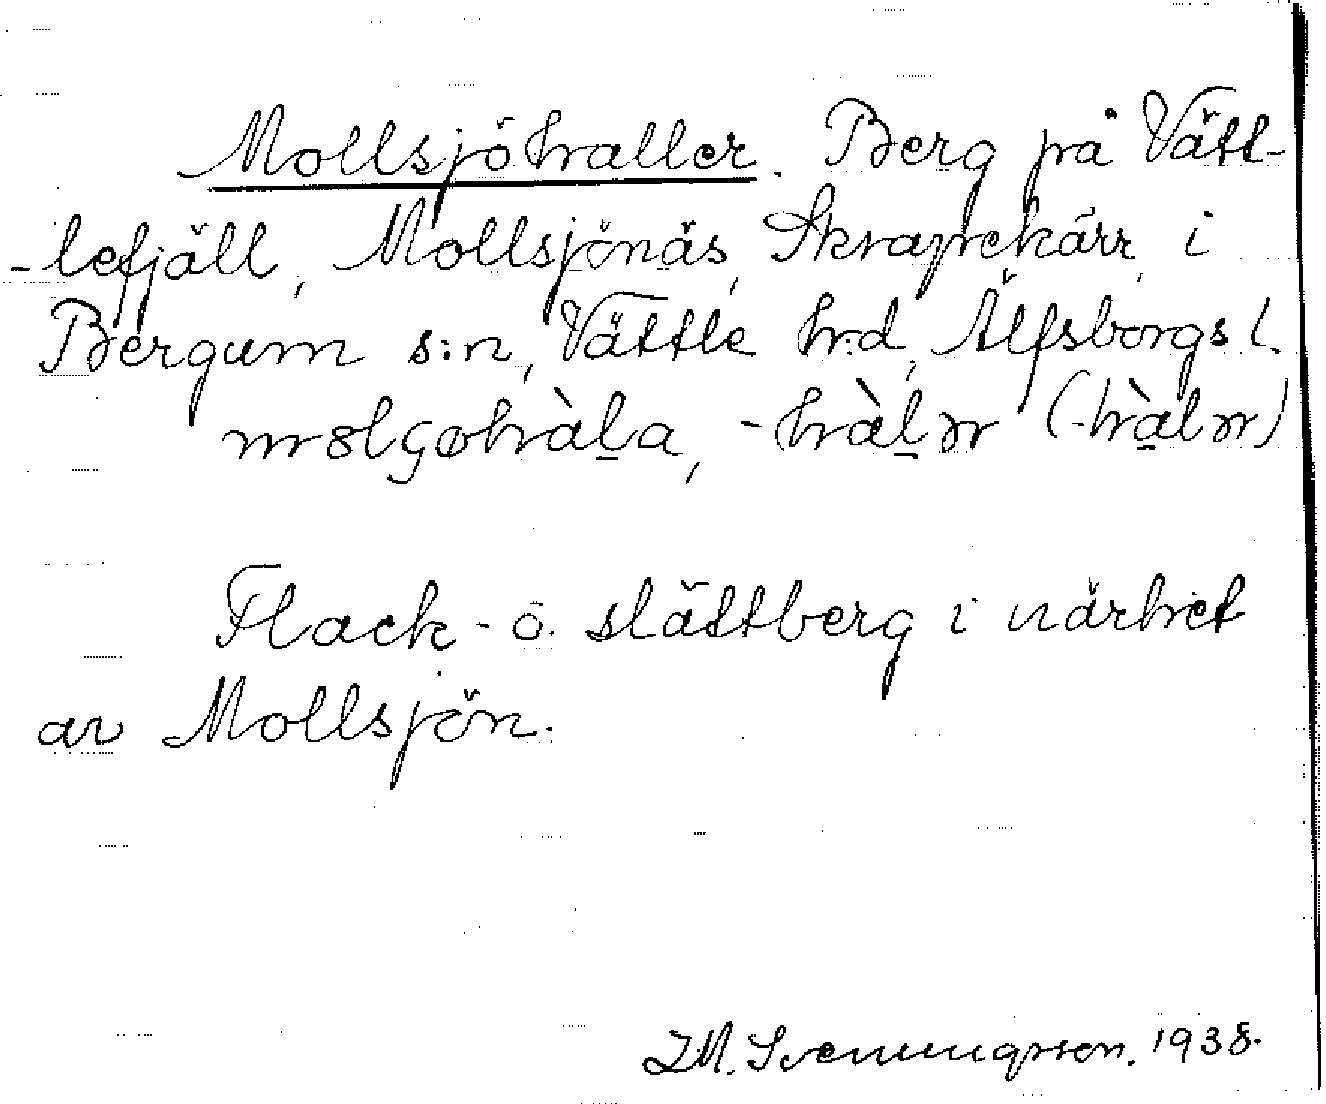 Mollsjöhaller. Berg på Vätt-
-lefjäll, Mollsjönäs, Skrapekärr, i
Bergum s:n, Vättle hd, Älfsborgs l.
Flack- o. slättberg i närhet
av Mollsjön.
I.M. Svenungsson. 1938.